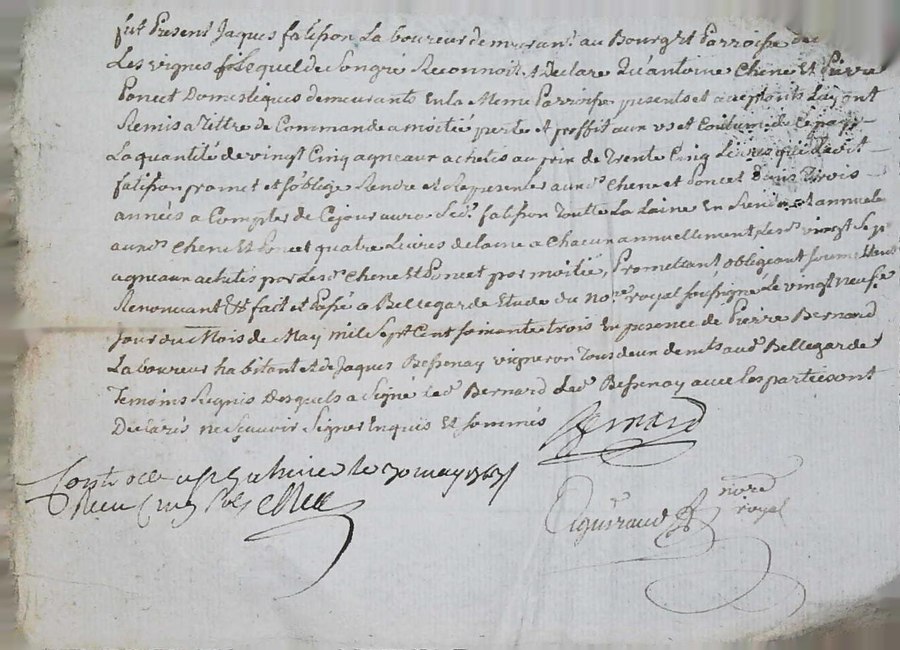 fut Present Jaques falipon Laboureur demeurant au Bourg et Parroisse de
Les vignes fs Lequel de Son gré Reconnoit et declare Qu'antoine Chene Et Pierre
Poncet Domestiques demeurants En la Meme Parroisse presents et acceptants Luy ont
Remis a Tittre de Commande a moitié perte et proffit aux us et Coutumes de Ce pays
La quantité de vingt Cinq agneaux achetés au prix de Trente Cinq Livres que Ledit
falipon promet et s'oblige Rendre et Représenter auxd. Chene et Poncet dans Trois
années a Compter de Cejour aura Led. falipon Toutte La Laine En Rendant annuel
auxd. Chene Et Poncet quatre Livres de laine a Chacun annuellement Lesd. vingt
agneaux achetés par Lesd. Chene Et Poncet par moitié, Promettant obligeant soumettant
Renonceant &a fait et Passé a Bellegarde Etude du nore royal soussigné Le vingt neufe
Jour du Mois de May mil Sept Cent soixante trois En presence de Pierre Bernard
Laboureur habitant et de Jaques Bessenay vigneron Tous deux demts aud Bellegarde
Temoins Requis desquels a Signé Led Bernard Led Bessenay avec Les parties ont
Declarés ne Scavoir Signer Enquis Et Sommés
Bernard
Controllé a St Galmier le 30 may 1763
Reçu Cinq Sols
nore
royal